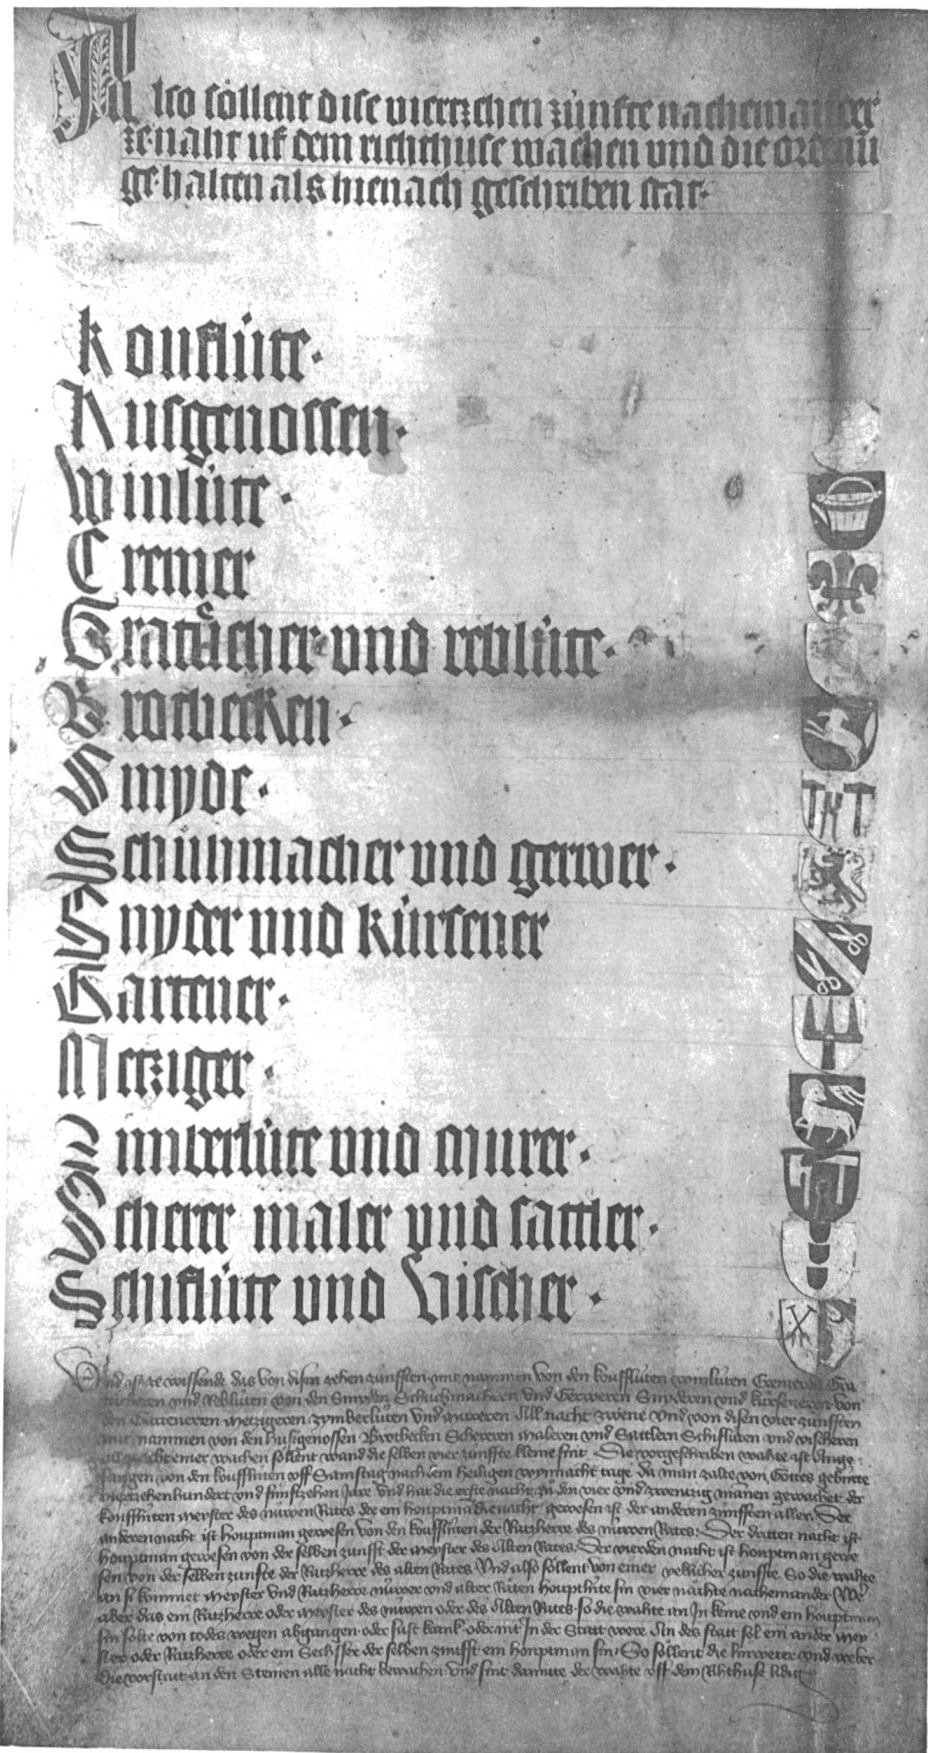 Also söllent dise viertzehen zünfte nacheinander
ze naht uf dem richthuse wachen und die ordenu
ge halten als hienach geschriben stat·
Kouflütte·
Husgenossen·
Winlütte·
Cremer
Gratücher und reblütte·
Brotbecken·
Smyde·
Schühmacher und gerwer·
Snyder und kürsener
Gartener·
Metziger·
Zimberlütte und Murer·
Scherer maler und sattler·
Schiflütte und Vischer·
Und ist ze wissende das von disen zehen zünfften mit nammen von den koufflüten winlüten Cremeren Gra
tücheren und Reblüten von den Smyden Schüchmacheren und Gerweren Snyderen und kürseneren von
den Garteneren Metzigeren zymberlüten und mureren All nacht zwene Und von disen vier zünfften
mit nammen von den husgenossen Brotbecken Scherern maleren und Sattlern Schiflüten und vischeren
all nacht einer wachen söllent wand die selben vier zunffte kleine sint· Die vorgeschriben wahte ist Ange
fangen von den koufflüten uff Samstag nach dem heiligen wynnacht tage Da man zalte von Gottes gebürte
viertzehenhundert und fünfftzehen Jare Und hat die erste nacht zu den vier und zwentzig manen gewachet der
koufflüten meyster des nüwen Rates der ein houptman die nacht gewesen ist der anderen zünfften aller· Der
anderen nacht ist houptman gewesen von den koufflüten der Ratzherre des nüwen Rates· Der dritten nacht ist
houptman gewesen von der selben zunfft der meyster des Alten Rates· Der vierden nacht ist houptman gewe
sen von der selben zunfte der Ratzherre des alten Rates Und also söllent von einer yeklicher zunffte· So die wahte
an si kommet meyster und Ratzherre nüwer und alter Räten houptlüte sin vier nächte nacheinander· We
aber das ein Ratzherre oder meyster des nüwen oder des Alten Rates· so die wahte an In keme und ein houptman
sin solte von todes wegen abgangen· oder süst krank· oder nit In der Statt were An des statt sol ein ander mey
ster oder Ratzherre oder ein Sechsser der selben zunfft ein houptman sin· So söllent die linweter und weber
die vorstatt an den Steinen alle nacht bewachen Und sint damitte der wahte uff dem Rihthuse lidig